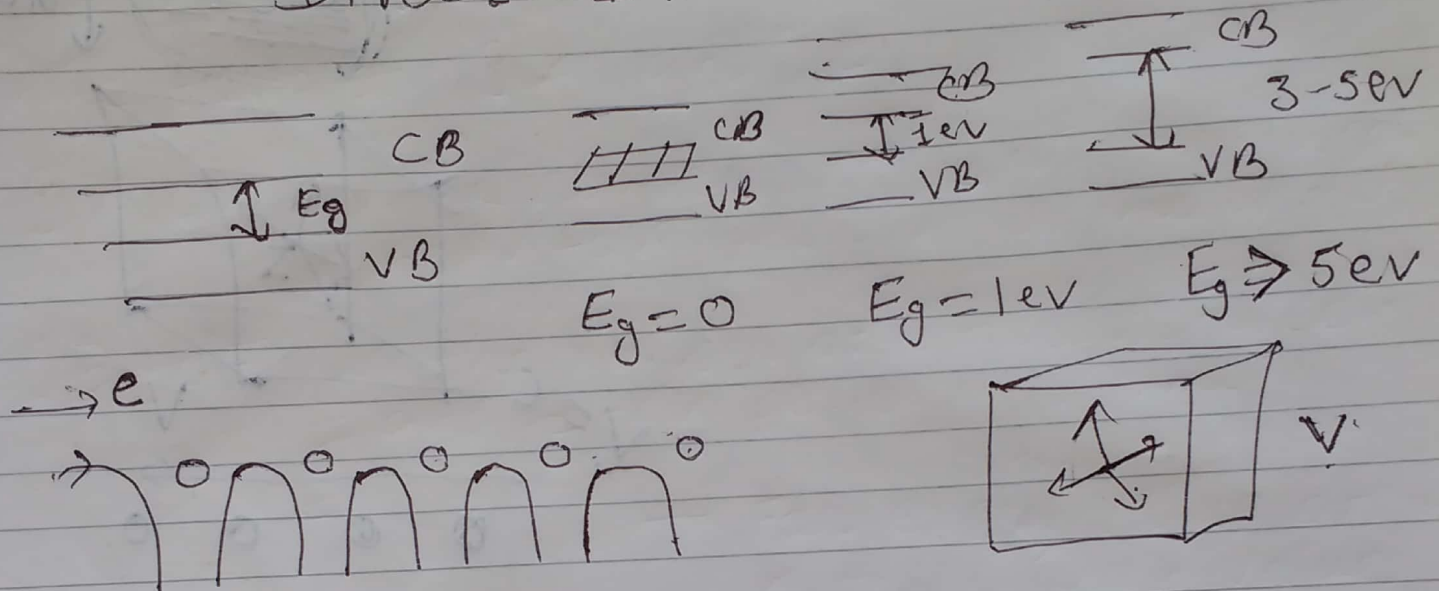 CB
Eg
VB
CB
VB
CB
1ev
VB
CB
3-5ev
VB
Eg=0
Eg=1ev
Eg⩾5ev
e
V